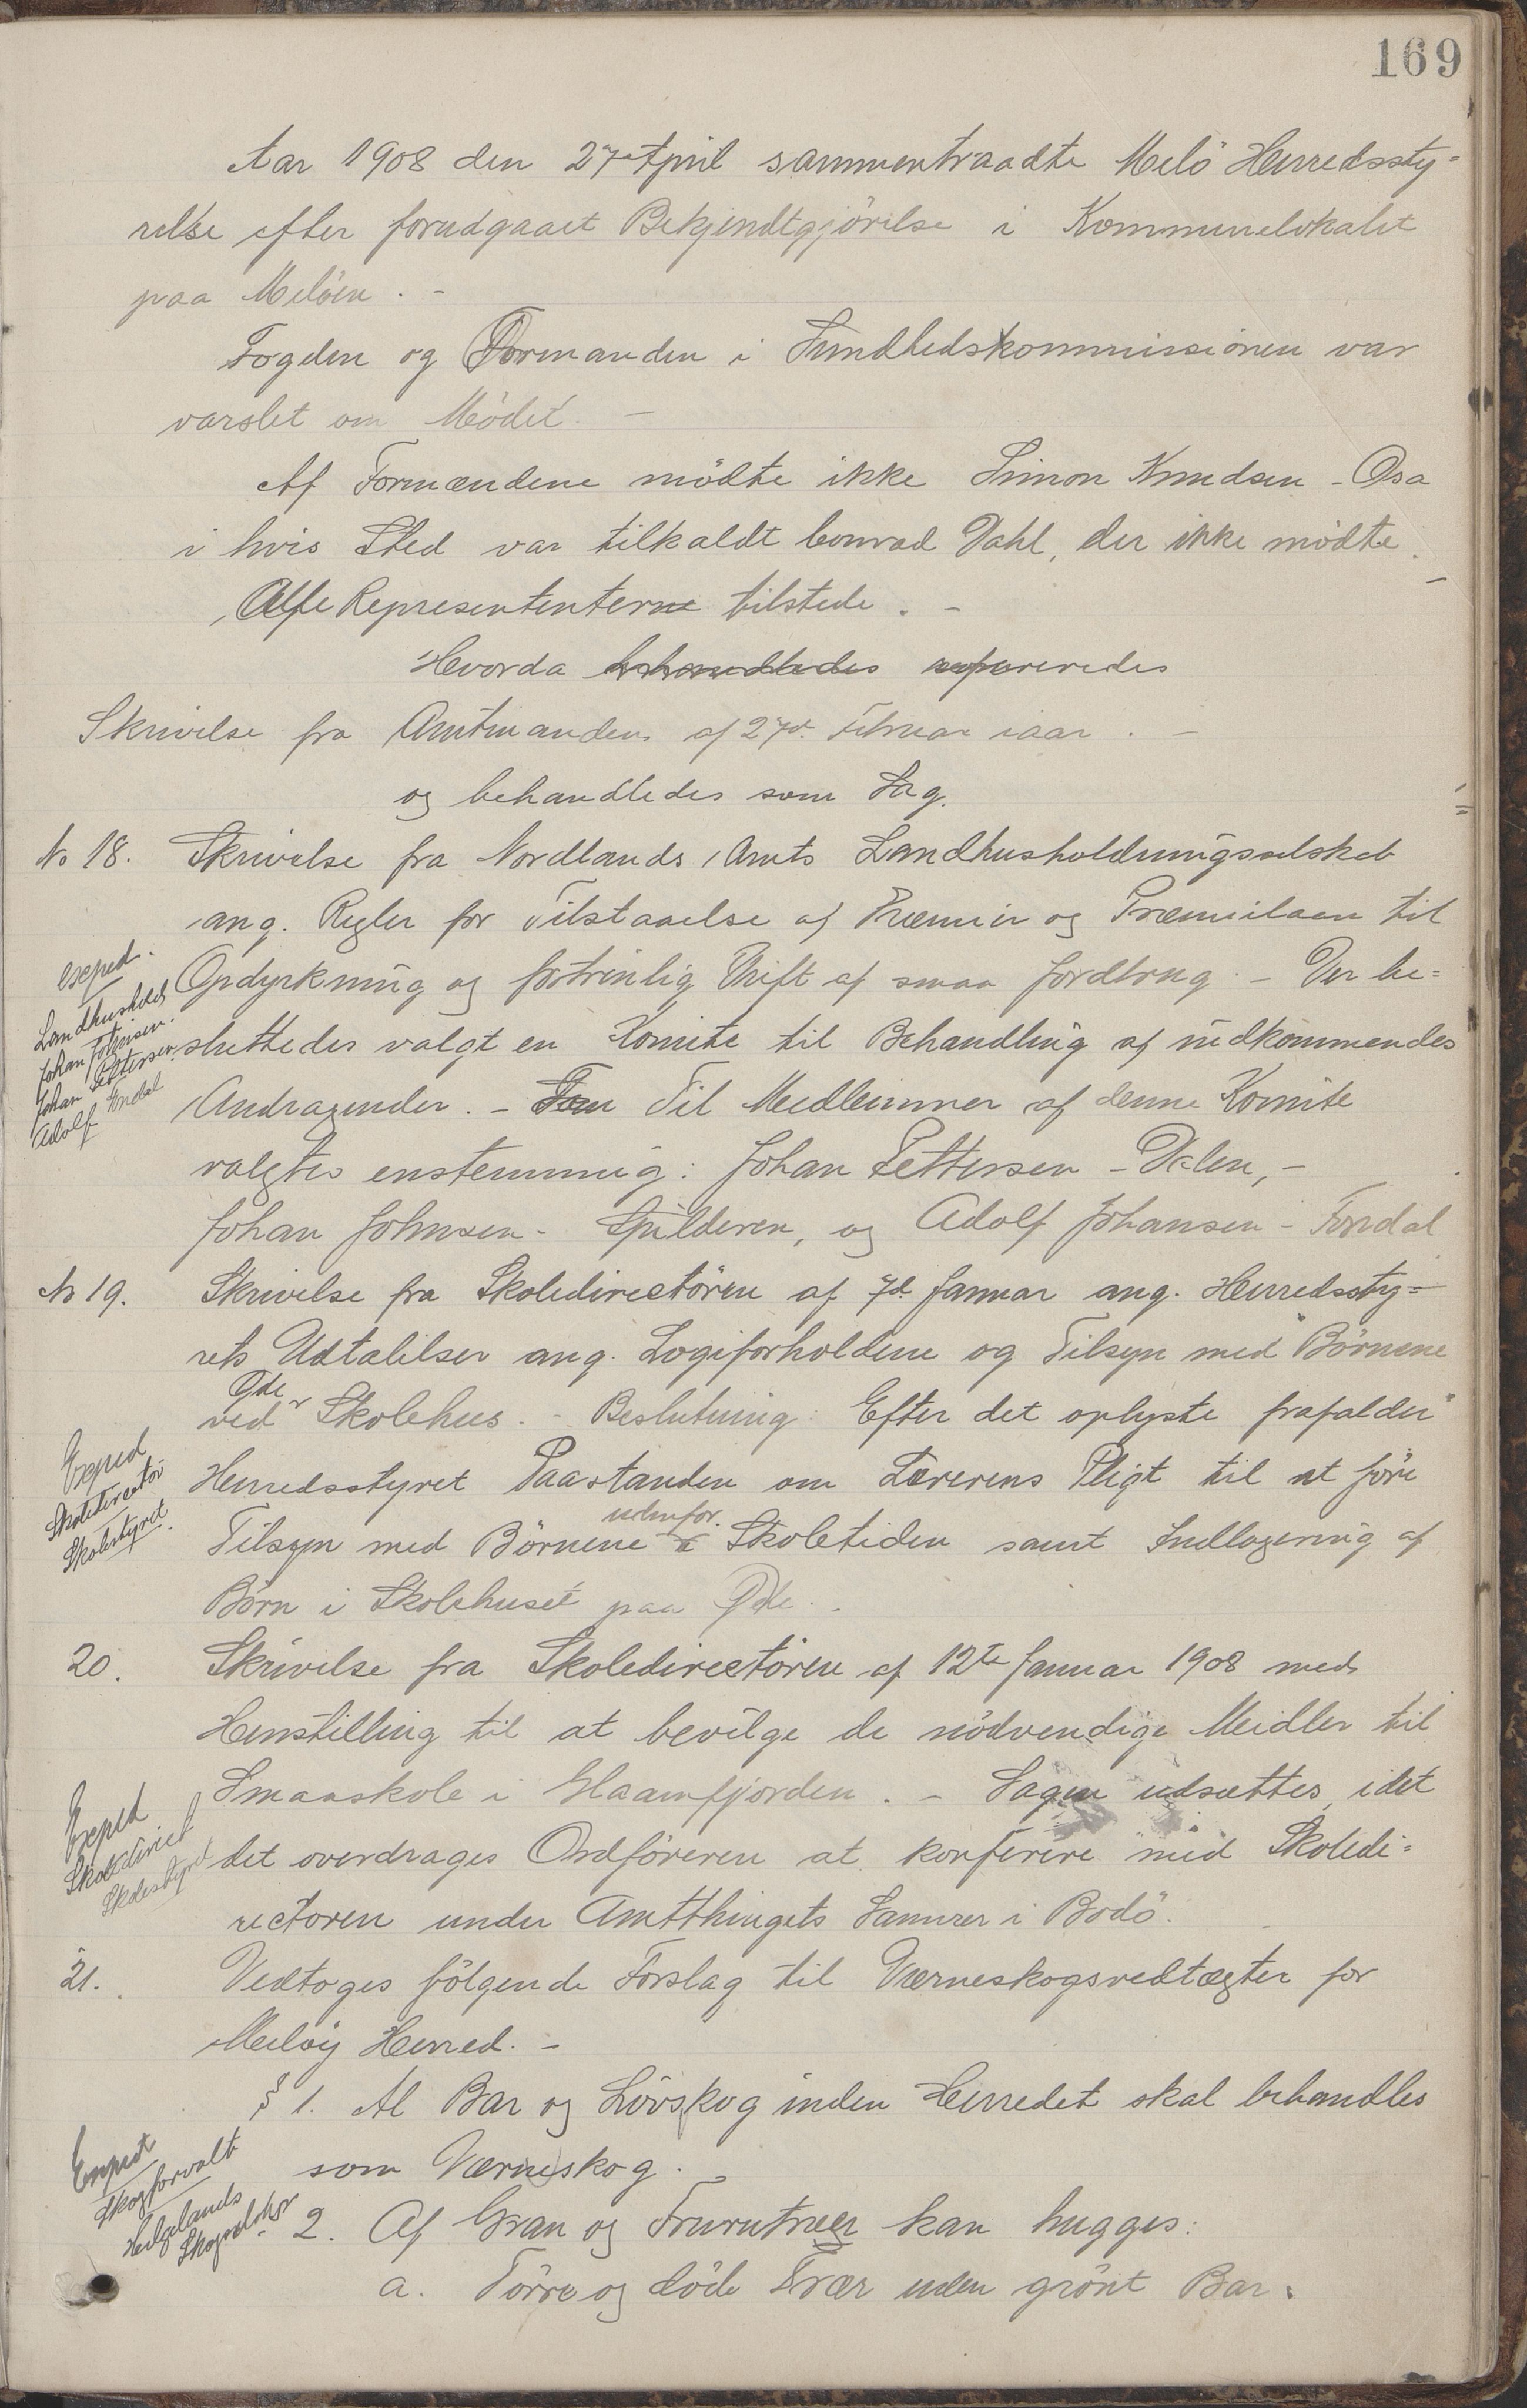 169
Aar 1908 den 27 April sammentraadte Melö Herredssty=
relse efter forudgaaet Bekjendtgjörelse i Kommunelokalet
paa Melöen. -
Fogden og Formanden i Sundhedskommissionen var
varslet om Mödet. -
Af Formændene mödte ikke Simon Knudsen - Osa
i hvis Sted var tilkaldt Conrad Dahl, der ikke mödte. -
Alle Represententerne tilstede. -
Hvorda behandledes refereredes
Skrivelse fra Amtmanden af 27de Februar iaar. -
og behandledes som Sag.
No 18. Skrivelse fra Nordlands Amts Landhusholdningsselskab
ang. Regler for Tilstaaelse af Præmier og Præmielaan til
Opdyrkning og fortrinlig Drift af smaa Jordbrug. - Der be=
sluttedes valgt en Komite til Behandling af indkommendes
Andragender. - Som Til Medlemmer af denne Komite
valgtes enstemmig: Johan Pettersen - Dalen, -
Johan Johnsen - Spilderen, og Adolf Johansen - Fondal
exped.
Landhusholds
Johan Johnsen.
Johan Pettersen
Adolf Fondal
No 19. Skrivelse fra Skoledirectören af 7de Januar ang. Herredssty=
rets Udtalelser ang. Logiforholdene og Tilsyn med Börnene
ved Øde Skolehus. - Beslutning: Efter det oplyste frafalder
Herredsstyret Paastanden om Lærerens Pligt til at före
Tilsyn med Börnene udenfor Skoletiden samt Indlogering af
Börn i Skolehuset paa Øde. -
Exped
Skoledirectör
Skolestyret.
20. Skrivelse fra Skoledirectören af 12te Januar 1908 med
Henstilling til at bevilge de nödvendige Meidler til
Smaaskole i Glaamfjorden. - Sagen udsættes, idet
det overdrages Ordföreren at konferere med Skoledi=
rectoren under Amtthingets Samvær i Bodö.
Exped
Skoledirect
Skolestyret
21. Vedtoges fölgende Forslag til Værneskogsvedtægter for
Melöy Herred. -
§ 1. Al Bar og Lövskog inden Herredet skal behandles
som Værneskog.
- 2. Af Gran og Furutrær kan hugges:
a. Törre og döde Trær uden grönt Bar.
Exped
Skogforvalt
Helgelands
Skogselskap